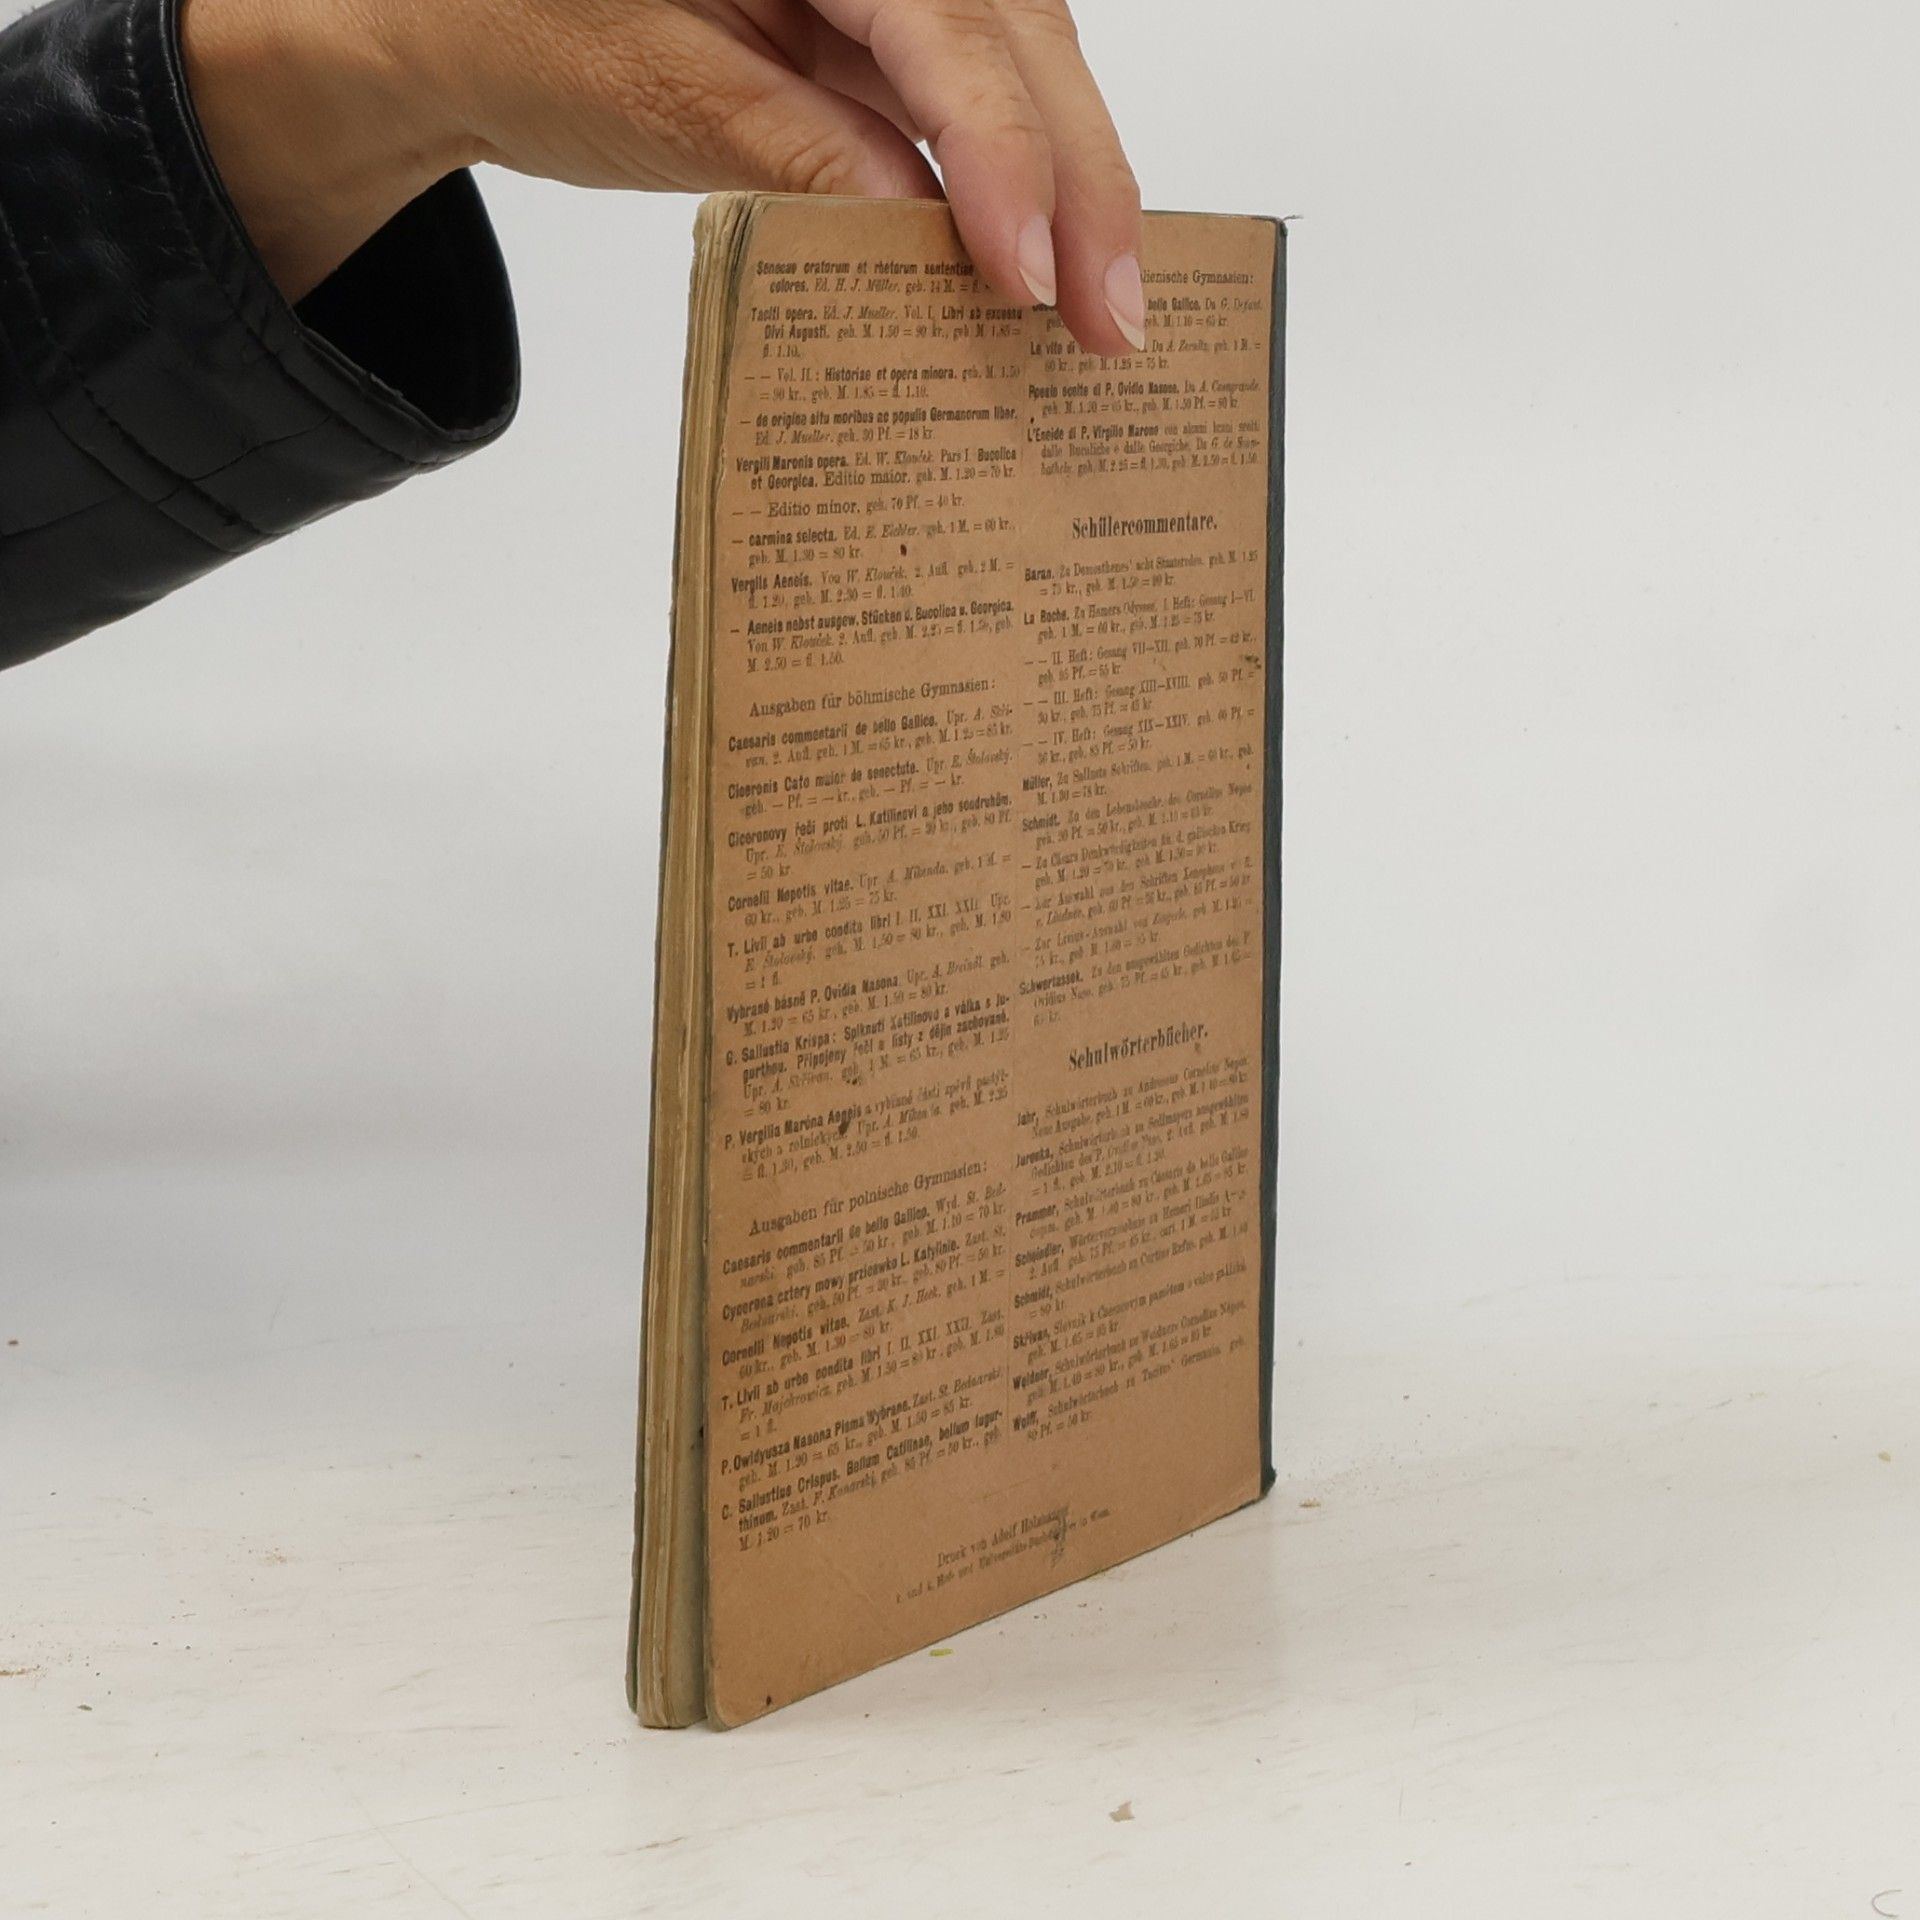 Senecae oratorum et rhetorum sententiae
colores. Ed. H. J. Müller. geh. 14 M. = fl.
Taciti opera. Ed. J. Mueller. Vol. I. Libri ab excessu
Divi Augusti. geh. M. 1.50 = 90 kr., geb. M. 1.85 =
fl. 1.10.
— — Vol. II.: Historiae et opera minora. geh. M. 1.50
= 90 kr., geb. M. 1.85 = fl. 1.10.
— de origine situ moribus ac populis Germanorum liber.
Ed. J. Mueller. geh. 30 Pf. = 18 kr.
Vergili Maronis opera. Ed. W. Klouček. Pars I. Bucolica
et Georgica. Editio maior. geh. M. 1.20 = 70 kr.
— — Editio minor. geh. 70 Pf. = 40 kr.
— carmina selecta. Ed. E. Eichler. geh. 1 M. = 60 kr.,
geb. M. 1.30 = 80 kr.
Vergils Aeneis. Von W. Klouček. 2. Aufl. geh. 2 M. =
fl. 1.20, geb. M. 2.30 = fl. 1.40.
— Aeneis nebst ausgew. Stücken d. Bucolica u. Georgica.
Von W. Klouček. 2. Aufl. geh. M. 2.25 = fl. 1.30, geb.
M. 2.50 = fl. 1.50.
Ausgaben für böhmische Gymnasien:
Caesaris commentarii de bello Gallico. Upr. A. Skři-
van. 2. Aufl. geh. 1 M. = 65 kr., geb. M. 1.25 = 85 kr.
Ciceronis Cato maior de senectute. Upr. E. Štolovský.
geh. — Pf. = — kr., geb. — Pf. = — kr.
Ciceronovy řeči proti L. Katilinovi a jeho soudruhům.
Upr. E. Štolovský. geh. 50 Pf. = 30 kr., geb. 80 Pf.
= 50 kr.
Cornelii Nepotis vitae. Upr. A. Mikenda. geh. 1 M. =
60 kr., geb. M. 1.25 = 75 kr.
T. Livii ab urbe condita libri I. II. XXI. XXII. Upr.
E. Štolovský. geh. M. 1.50 = 80 kr., geb. M. 1.80
= 1 fl.
Vybrané básně P. Ovidia Nasona. Upr. A. Breindl. geh.
M. 1.20 = 65 kr., geb. M. 1.50 = 80 kr.
G. Sallustia Krispa: Spiknutí Katilinovo a válka s Ju-
gurthou. Připojeny řeči a listy z dějin zachované.
Upr. A. Skřivan. geh. 1 M. = 65 kr., geb. M. 1.25
= 80 kr.
P. Vergilia Marona Aeneis a vybrané části zpěvů pastýř-
ských a rolnických. Upr. A. Mikenda. geh. M. 2.25
= fl. 1.30, geb. M. 2.50 = fl. 1.50.
Ausgaben für polnische Gymnasien:
Caesaris commentarii de bello Gallico. Wyd. St. Bed-
narski. geh. 85 Pf. = 50 kr., geb. M. 1.10 = 70 kr.
Cycerona cztery mowy przeciwko L. Katylinie. Zast. St.
Bednarski. geh. 50 Pf. = 30 kr., geb. 80 Pf. = 50 kr.
Cornelii Nepotis vitae. Zast. K. J. Heck. geh. 1 M. =
60 kr., geb. M. 1.30 = 80 kr.
T. Livii ab urbe condita libri I. II. XXI. XXII. Zast.
Fr. Majchrowicz. geh. M. 1.50 = 80 kr., geb. M. 1.80
= 1 fl.
P. Owidyusza Nasona Pisma Wybrane. Zast. St. Bednarski.
geh. M. 1.20 = 65 kr., geb. M. 1.50 = 85 kr.
C. Sallustius Crispus. Bellum Catilinae, bellum Iugur-
thinum. Zast. F. Konarski. geh. 85 Pf. = 50 kr., geb.
M. 1.20 = 70 kr.
lienische Gymnasien:
bello Gallico. Da G. Defant.
geh. geb. M. 1.10 = 65 kr.
Le vite di Da A. Zernitz. geh. 1 M. =
60 kr., geb. M. 1.25 = 75 kr.
Poesie scelte di P. Ovidio Nasone. Da A. Casagrande.
geh. M. 1.20 = 65 kr., geb. M. 1.50 Pf. = 80 kr.
L'Eneide di P. Virgilio Marone con alcuni brani scelti
dalle Bucoliche e dalle Georgiche. Da G. de Szom-
bathely. geh. M. 2.25 = fl. 1.30, geb. M. 2.50 = fl. 1.50.
Schülercommentare.
Baran. Zu Demosthenes' acht Staatsreden. geh. M. 1.25
= 75 kr., geb. M. 1.50 = 90 kr.
La Roche. Zu Homers Odyssee. I. Heft: Gesang I—VI.
geh. 1 M. = 60 kr., geb. M. 1.25 = 75 kr.
— — II. Heft: Gesang VII—XII. geh. 70 Pf. = 42 kr.,
geb. 95 Pf. = 55 kr.
— — III. Heft: Gesang XIII—XVIII. geh. 50 Pf. =
30 kr., geb. 75 Pf. = 45 kr.
— — IV. Heft: Gesang XIX—XXIV. geh. 60 Pf. =
36 kr., geb. 85 Pf. = 50 kr.
Müller, Zu Sallusts Schriften. geh. 1 M. = 60 kr., geb.
M. 1.30 = 78 kr.
Schmidt. Zu den Lebensbeschr. des Cornelius Nepos
geh. 90 Pf. = 50 kr., geb. M. 1.10 = 65 kr.
— Zu Cäsars Denkwürdigkeiten üb. d. gallischen Krieg.
geh. M. 1.20 = 70 kr., geb. M. 1.50 = 90 kr.
— Zur Auswahl aus den Schriften Xenophons v.
v. Lindner. geh. 60 Pf. = 36 kr., geb. 85 Pf. = 50 kr.
— Zur Livius-Auswahl von Zingerle. geh. M. 1.25 =
75 kr., geb. M.
Schwertassek. Zu den ausgewählten Gedichten des P.
Ovidius Naso. geh. 75 Pf. = 45 kr., geb. M. 1.05 =
kr.
Schulwörterbücher.
Jahr, Schulwörterbuch zu Andresens Cornelius Nepos.
Neue Ausgabe. geh. 1 M. = 60 kr., geb. M. 1.40 = 80 kr.
Jurenka, Schulwörterbuch zu Sedlmayers ausgewählten
Gedichten des P. Ovidius Naso. 2. Aufl. geh. M. 1.80
= 1 fl., geb. M. 2.10 = fl. 1.20.
Prammer, Schulwörterbuch zu Caesaris de bello Gallico
comm. geh. M. 1.40 = 80 kr., geb. M. 1.65 = 95 kr.
Scheindler, Wörterverzeichnis zu Homeri Iliadis
2. Aufl. geh. 75 Pf. = 45 kr., cart. 1 M. = 55 kr.
Schmidt, Schulwörterbuch zu Curtius Rufus. geh. M. 1.40
= 80 kr.
Skřivan, Slovník k Caesarovým pamětem o válce gallské.
geb. M. 1.65 = 95 kr.
Weidner, Schulwörterbuch zu Weidners Cornelius Nepos.
geh. M. 1.40 = 80 kr., geb. M. 1.65 = 95 kr.
Wolff, Schulwörterbuch zu Tacitus' Germania. geh.
80 Pf. = 50 kr.
Druck von Adolf Holzhausen
k. und k. Hof- und Universitäts-Buchdrucker in Wien.